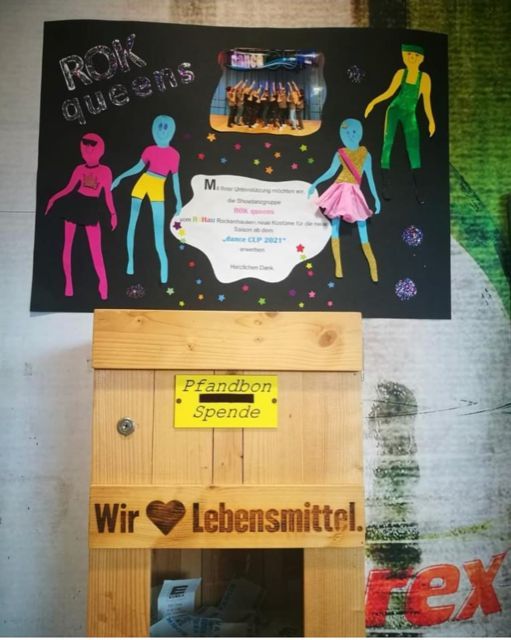 ROK
queens
Mit Ihrer Unterstützung möchten wir,
die Showtanzgruppe
ROK queens
vom Rockenhausen neue Kostüme für die neue
Saison ab dem
„dance CUP 2021"
erwerben
Herzlichen Dank
Pfandbon
Spende
Wir Lebensmittel.
rex